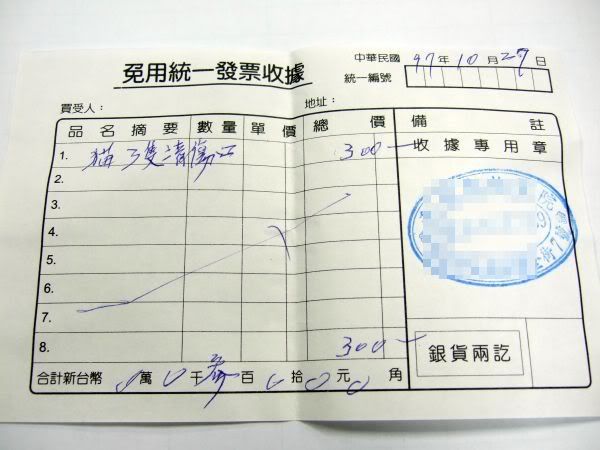 免用統一發票收據
中華民國 97年10月27日
統一編號
買受人：
地址：
品名摘要 數量 單價 總價 備註
1. 貓3隻清傷口 300一 收據專用章
2.
3.
4.
5.
6.
7.
8. 300一 銀貨兩訖
合計新台幣 0萬0千參百0拾0元0角